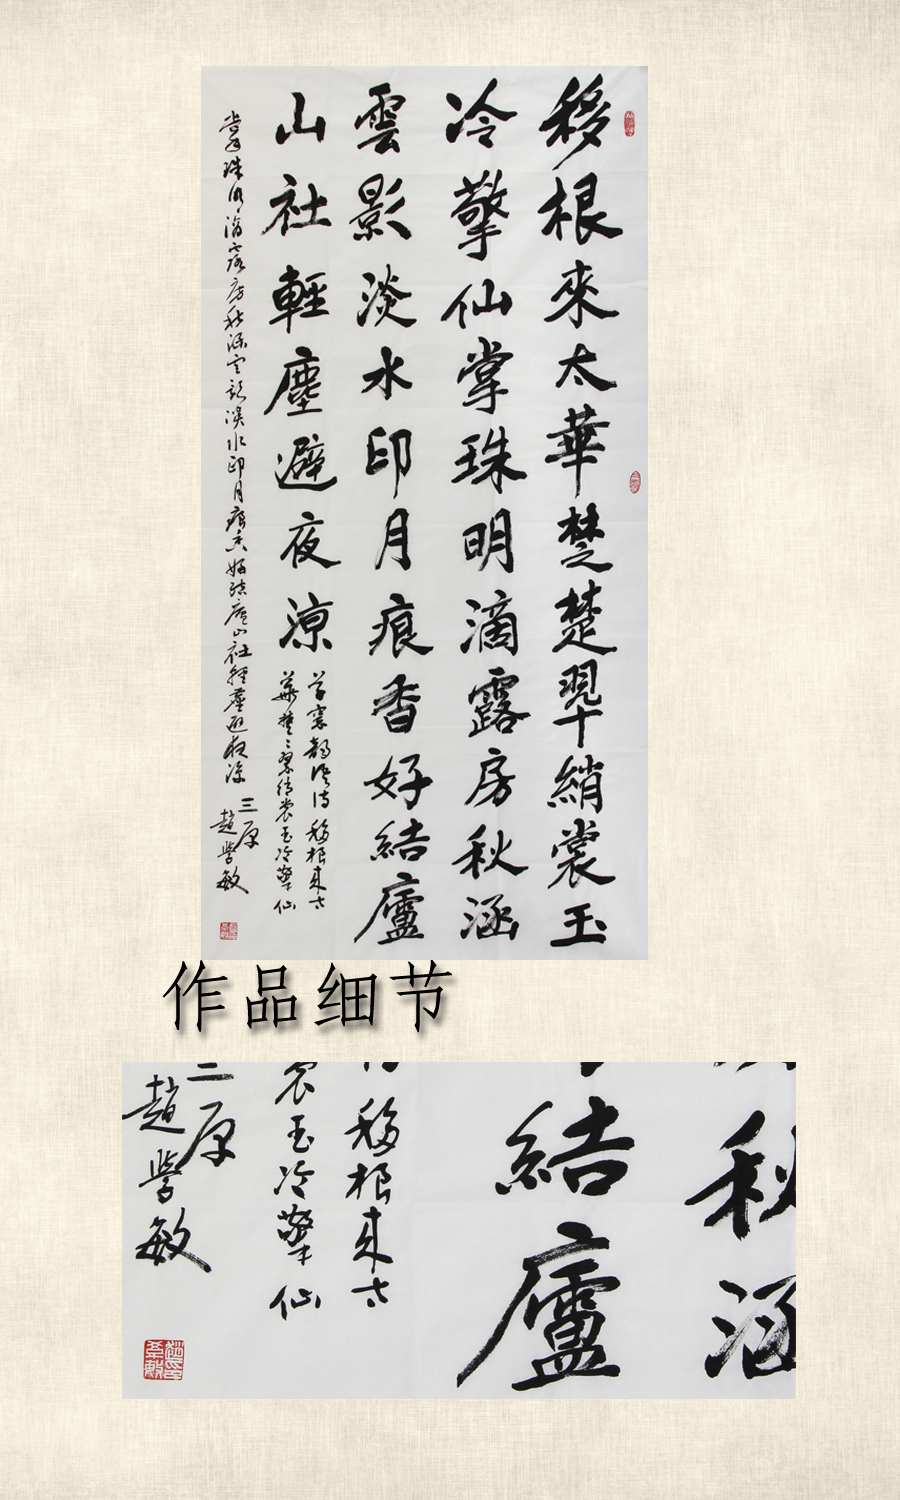 移根來太華楚楚翠綃裳玉
冷擎仙掌珠明滴露房秋涵
雲影淡水印月痕香好結廬
山社輕塵避夜涼
移根来太
華楚楚翠綃裳玉冷擎仙
掌珠明滴露房秋涵雲影淡水印月痕香好結廬山社輕塵避夜涼
三原
趙學敏
作品细节
秋涵
結廬
移根来太
裳玉冷擎仙
三原
趙學敏